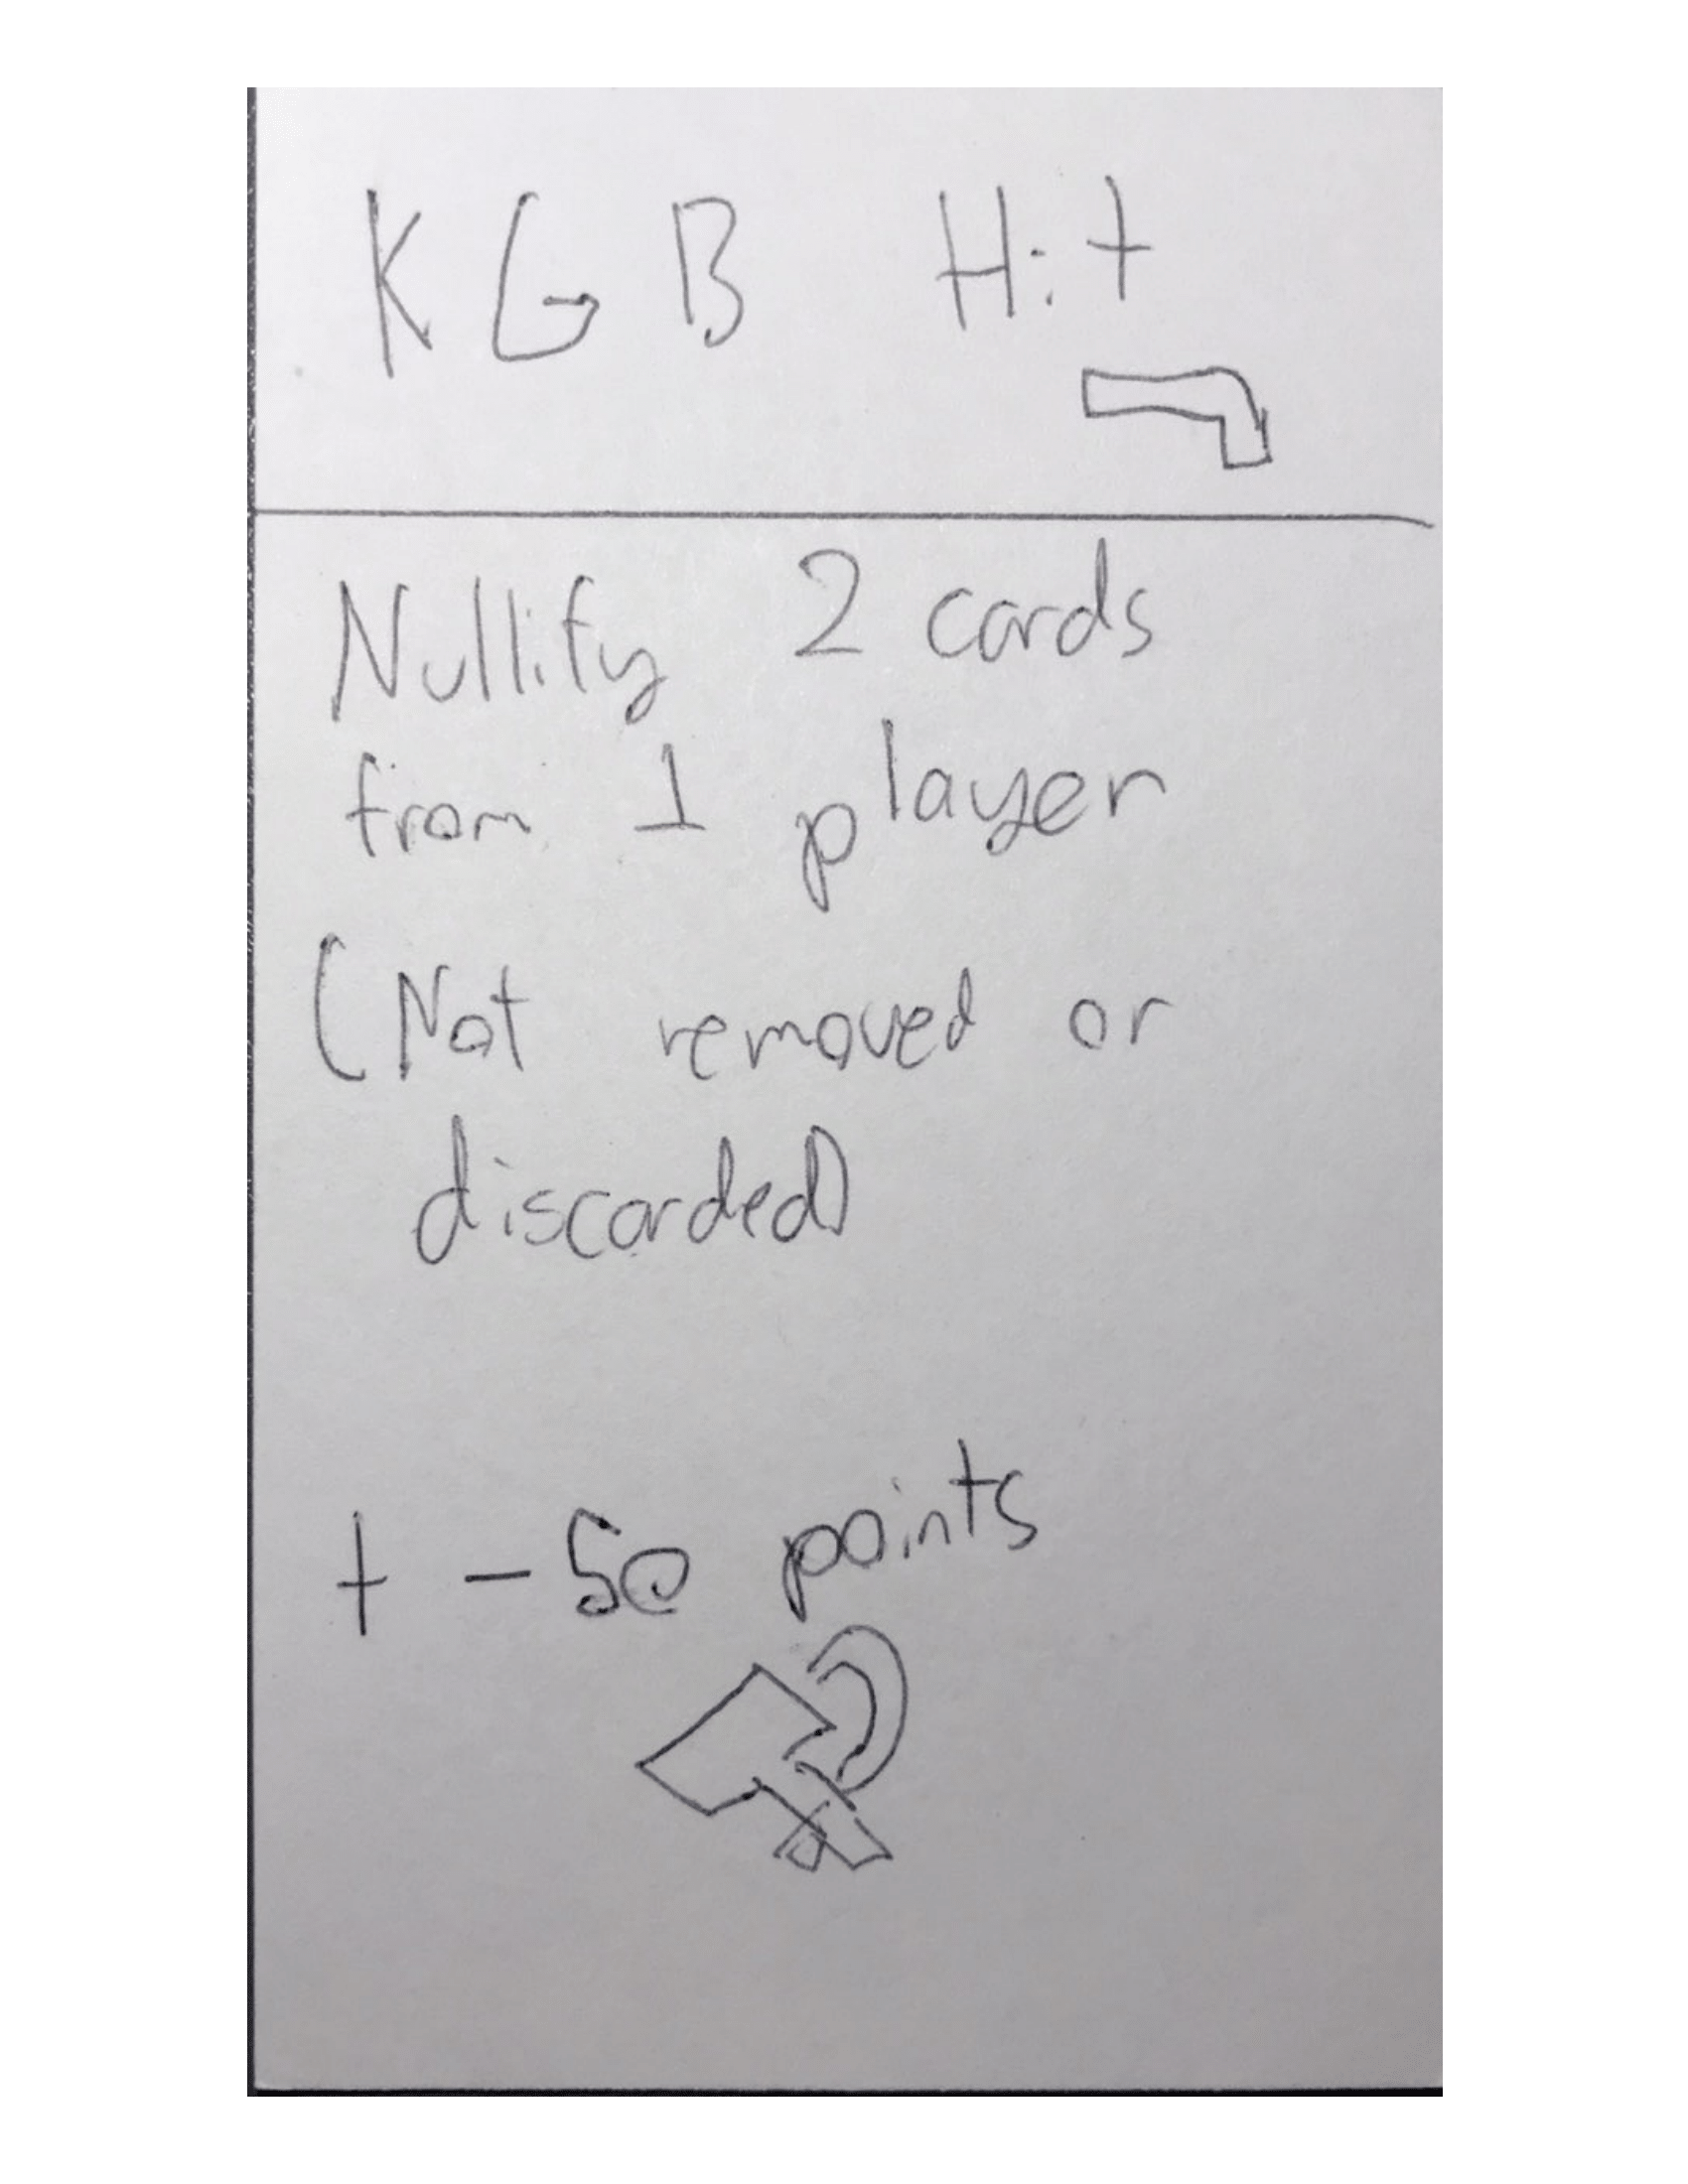 KGB Hit
Nullify 2 cards
from 1 player
(Not removed or
discarded)
+ -50 points